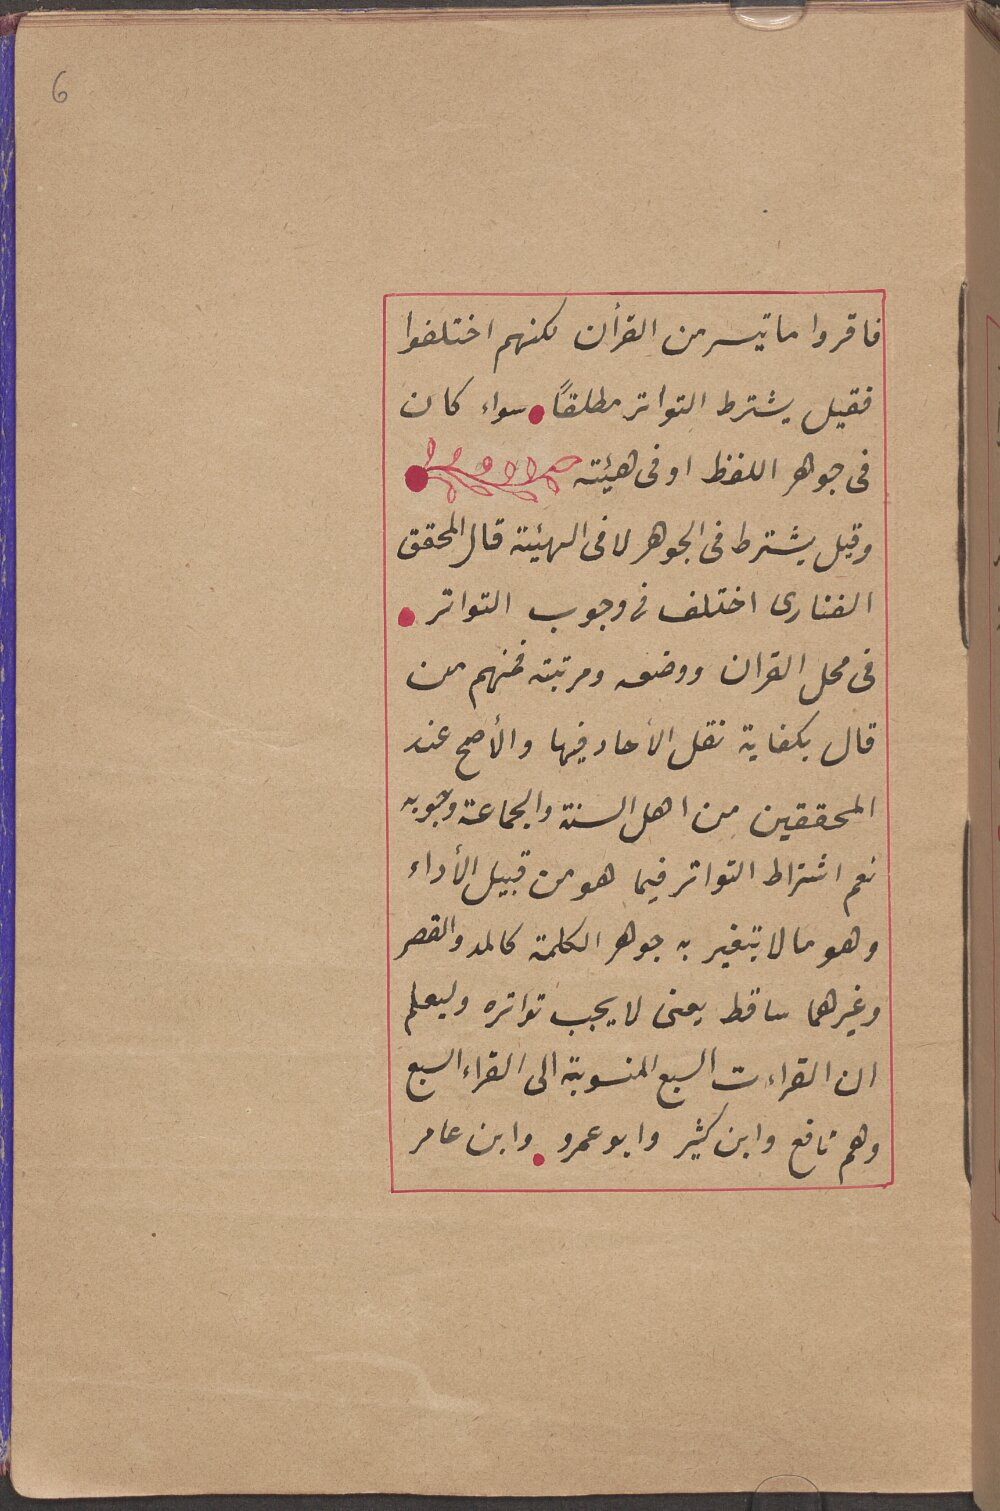 6
فاقروا ما تيسر من القرأن لكنهم اختلفوا
فقيل يشترط التواتر مطلقاً سواء كان
فى جوهر اللفظ او فى هيئته
وقيل يشترط فى الجوهر لا فى الهيئة قال المحقق
الفنارى اختلف فى وجوب التواتر
فى محل القران ووضعه ومرتبته فمنهم من
قال بكفاية نقل الأحاد فيها والأصح عند
المحققين من اهل السنة والجماعة وجوبه
نعم اشتراط التواتر فيما هو من قبيل الأداء
وهو ما لا يتغير به جوهر الكلمة كالمد والقصر
وغيرهما ساقط يعنى لا يجب تواتره وليعلم
ان القراءت السبع المنسوبة الى القراء السبع
وهم نافع وابن كثير وابو عمرو وابن عامر